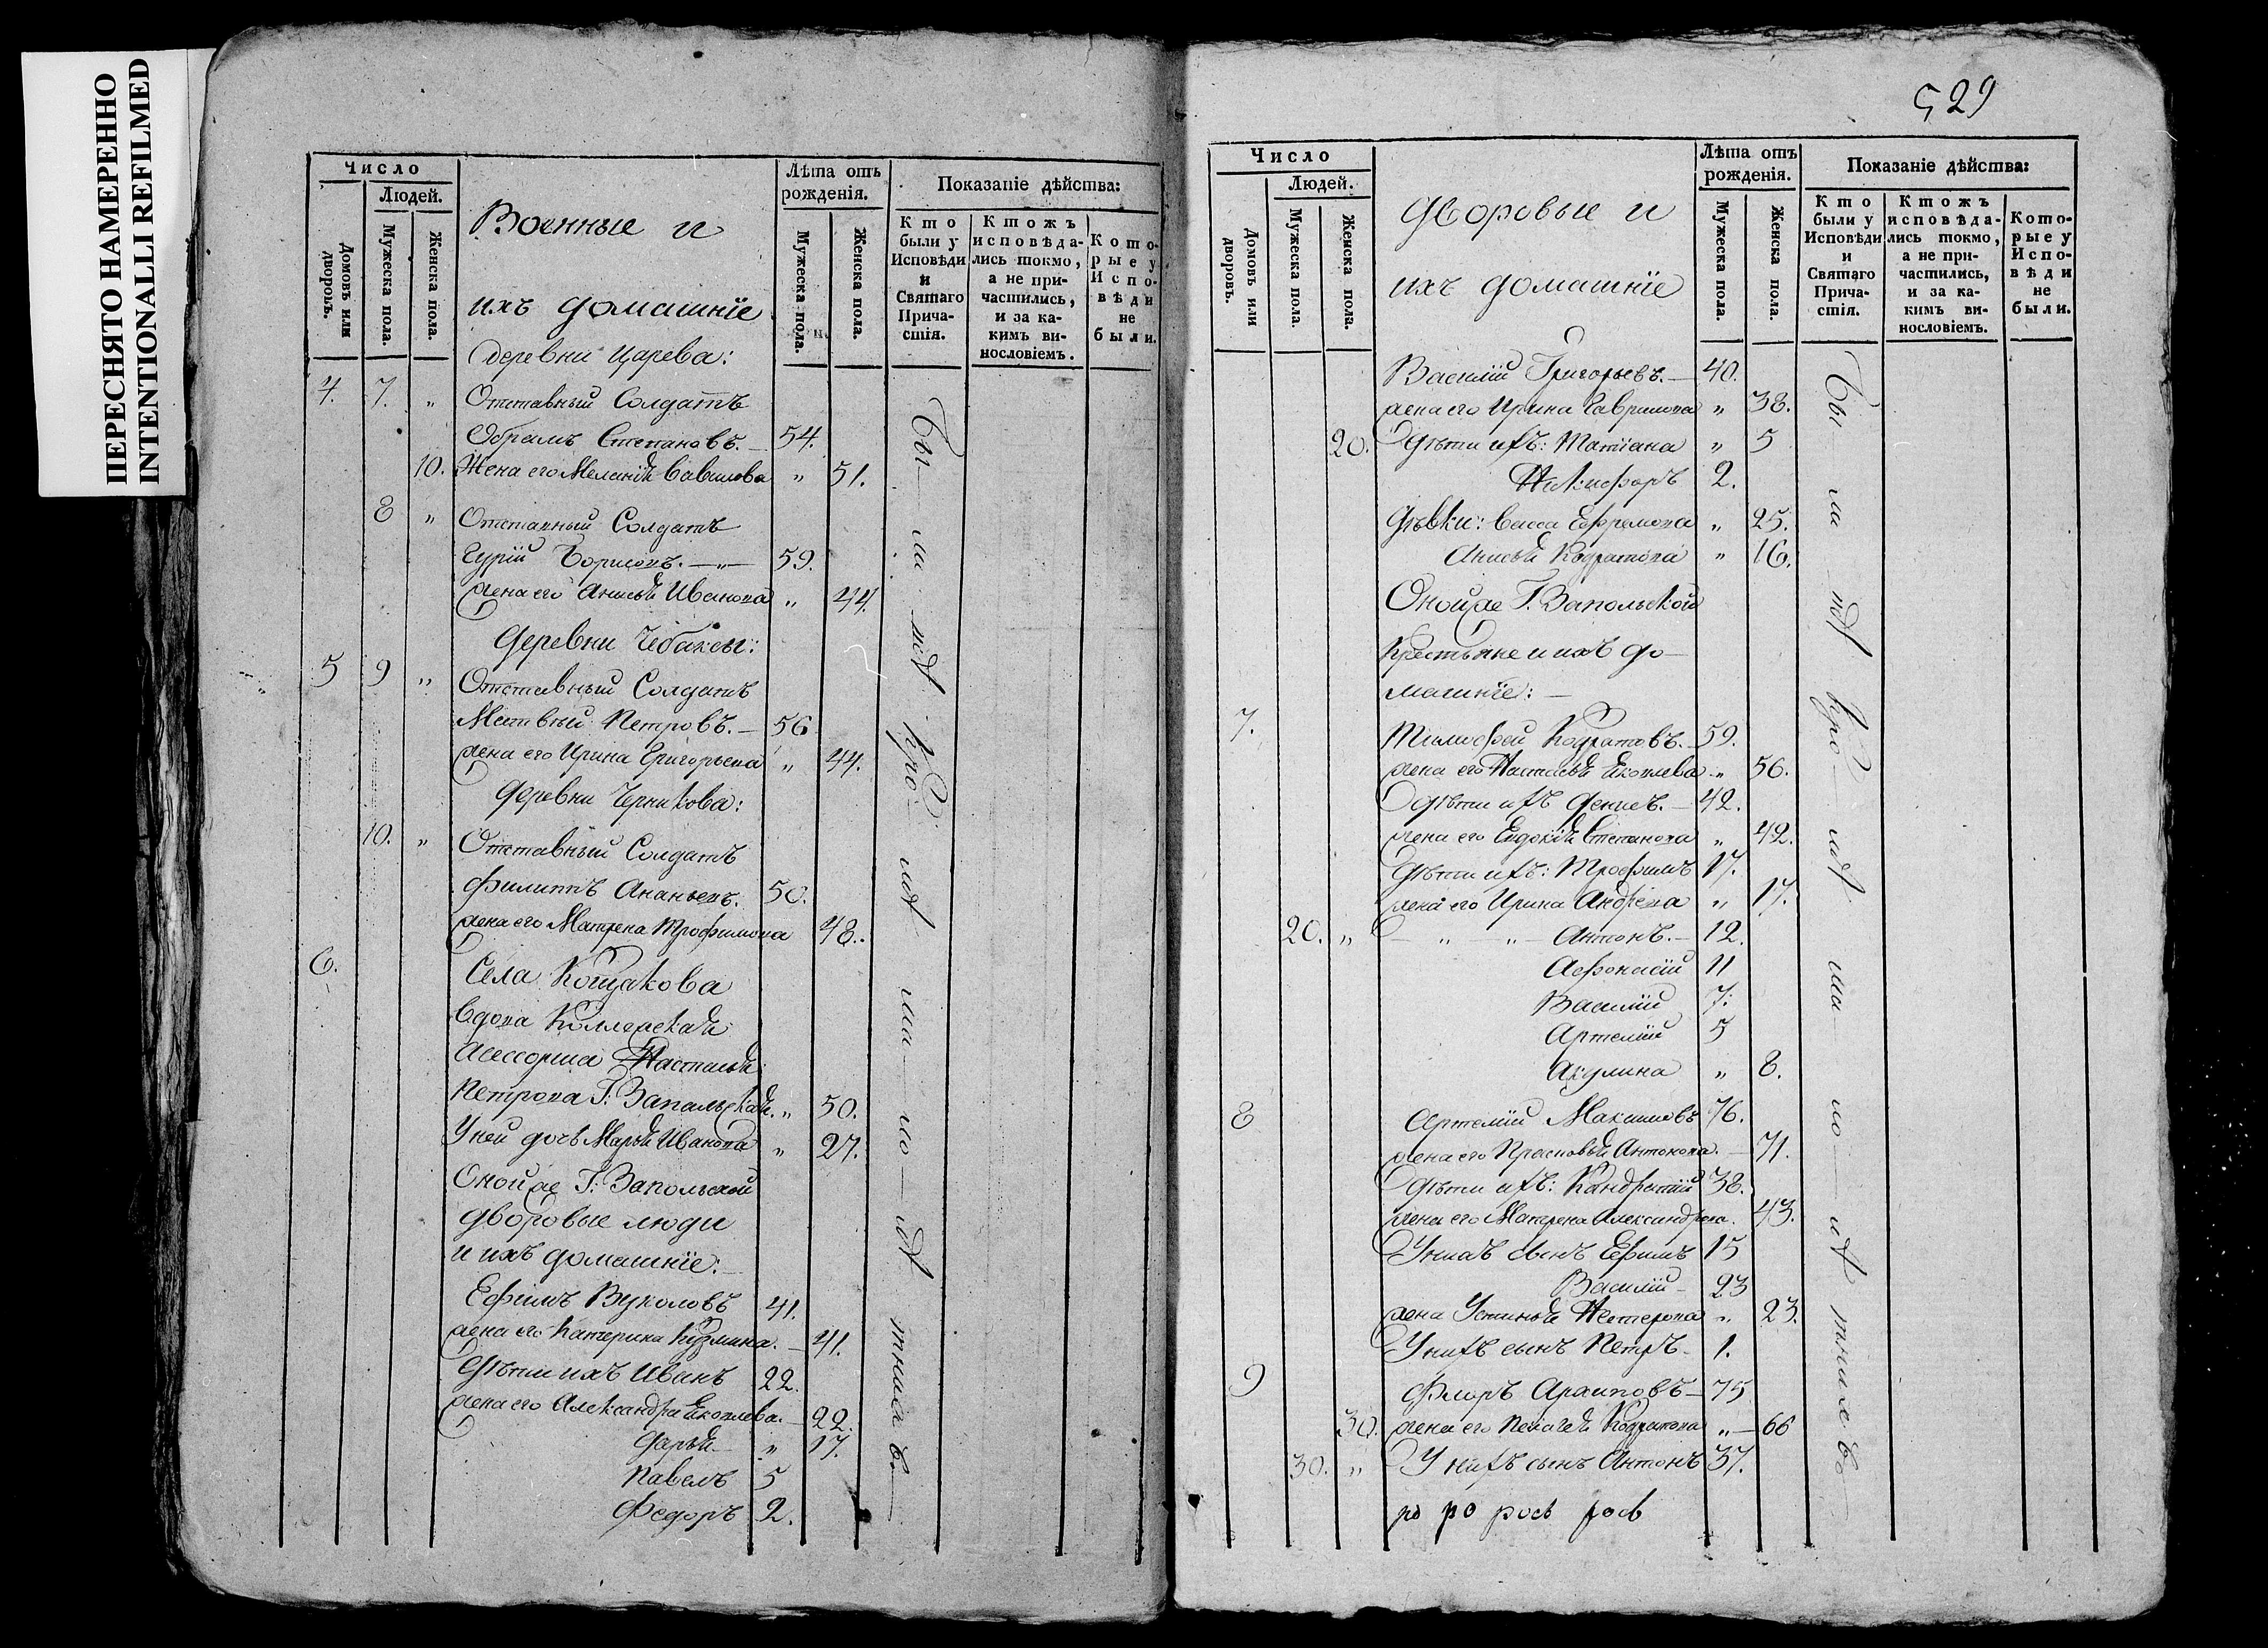 ПЕРЕСНЯТО НАМЕРЕННО
INTENTIONALLI REFILMED
Число
Людей.
Домовъ или дворовъ.
Мужеска пола.
Женска пола.
Военные и
ихъ домашніе
Лѣта отъ рожденія.
Мужеска пола.
Женска пола.
Показаніе дѣйства:
Кто были у Исповѣди и Святаго Причастія.
Ктожъ исповѣдались токмо, а не причастились, и за какимъ винословіемъ.
Которые у Исповѣди не были.
деревни Царева:
4. 7. „ Отставный Солдатъ
Обрамъ Степановъ. 54.
10. Жена его Меланія Савилова „ 51.
8 „ Отставный Солдатъ
Гурій Борисовъ. 59.
жена его Анисья Иванова „ 44.
деревни Чебаксы:
5 9 „ Отставный Солдатъ
Матвѣй Петровъ. 56
жена его Ирина Григорьева „ 44.
деревни Черникова:
10. „ Отставный Солдатъ
Филиппъ Ананьевъ. 50.
жена его Матрена Трофимова 48.
6. Села Кощакова
вдова Коллежская
Асессорша Настасья
Петрова Г. Запальская. „ 50.
У ней дочь Марья Иванова „ 27.
Онойже Г. Запольской
дворовые люди
и ихъ домашніе:
Ефимъ Вуколовъ 41.
жена его Катерина Кузмина. 41.
дѣти ихъ Иванъ 22.
жена его Александра Яковлева. 22.
дарья „ 17.
Павелъ 5
Федоръ 2.
529
Число
Людей.
Домовъ или дворовъ.
Мужеска пола.
Женска пола.
дворовые и
ихъ домашніе
Лѣта отъ рожденія.
Мужеска пола.
Женска пола.
Показаніе дѣйства:
Кто были у Исповѣди и Святаго Причастія.
Ктожъ исповѣдались токмо, а не причастились, и за какимъ винословіемъ.
Которые у Исповѣди не были.
Василій Григорьевъ. 40.
жена его Ирина Гаврилова „ 38.
20. дѣти ихъ: Татіана „ 5
Никифоръ 2.
дѣвки: Васса Ефремова „ 25.
Анисья Кодратова „ 16.
Онойже Г. Запольской
Крестьяне и ихъ до-
машніе:
7. Тимофей Кодратовъ. 59.
жена его Настасья Яковлева „ 56.
дѣти ихъ денисъ. 42.
жена его Евдокія Степанова „ 42.
дѣти ихъ: Трофимъ 17.
жена его Ирина Андреева „ 17.
20. „ Антонъ. 12.
Афонасій 11
Василій 7.
Артемій 5
Акулина „ 8.
8 Артемій Максимовъ 76.
жена его Прасковья Антонова. 71.
дѣти ихъ: Кандратій 38.
жена его Матрена Александрова. 43.
У нихъ сынъ Ефимъ 15
Василій 23
жена Устинья Нестерова „ 23.
У нихъ сынъ Петръ 1.
9 Флоръ Архиповъ 75
30. жена его Пелагея Кодратова „ 66
30. „ У нихъ сынъ Антонъ 37.